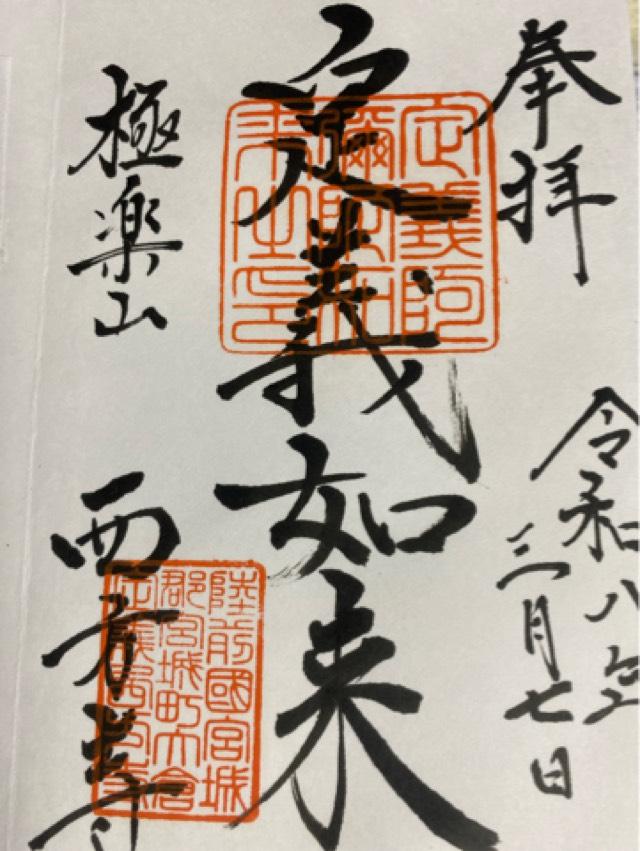 奉拝
令和八年
三月七日
定義如来
定義阿
彌陀如
来之印
極楽山
西方寺
陸前國宮城
郡宮城町大倉